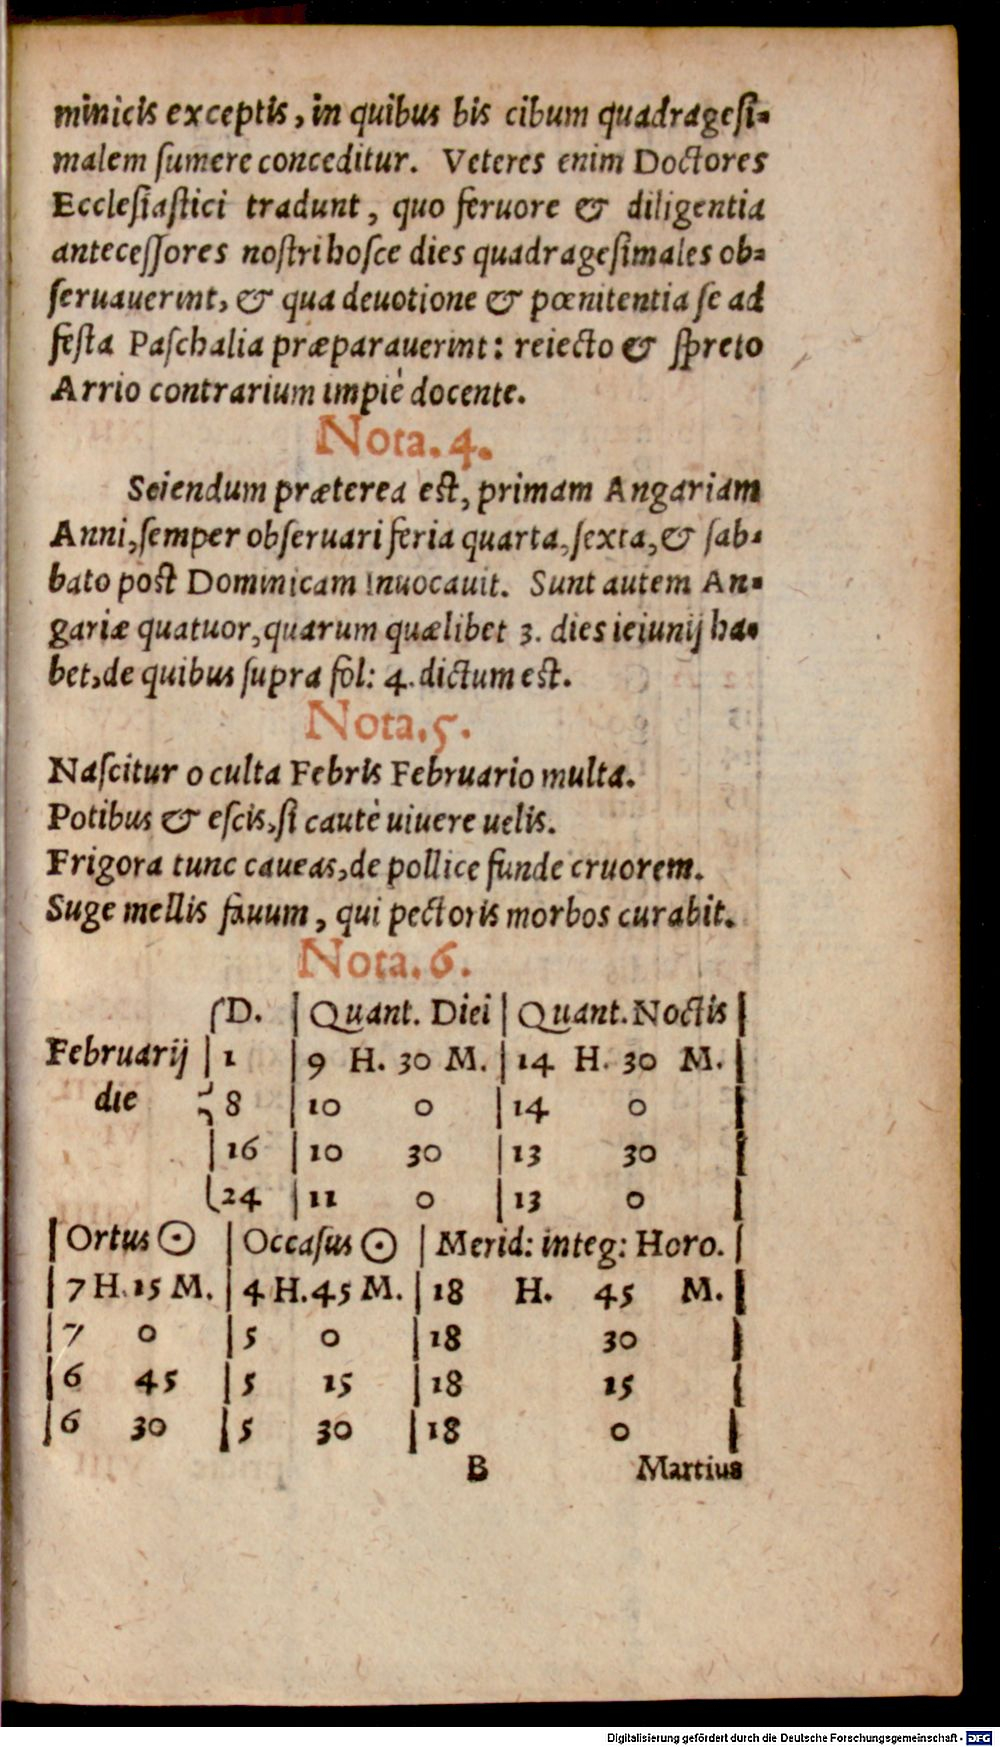 minicis exceptis, in quibus bis cibum quadragesi-
malem sumere conceditur. Veteres enim Doctores
Ecclesiastici tradunt, quo feruore & diligentia
antecessores nostri hosce dies quadragesimales ob-
seruauerint, & qua deuotione & pœnitentia se ad
festa Paschalia præparauerint: reiecto & spreto
Arrio contrarium impiè docente.
Nota. 4.
Seiendum præterea est, primam Angariam
Anni, semper obseruari feria quarta, sexta, & sab-
bato post Dominicam Inuocauit. Sunt autem An-
gariæ quatuor, quarum quælibet 3. dies ieiunij ha-
bet, de quibus supra fol: 4. dictum est.
Nota. 5.
Nascitur oculta Febris Februario multa.
Potibus & escis, si cautè uiuere uelis.
Frigora tunc caueas, de pollice funde cruorem.
Suge mellis fauum, qui pectoris morbos curabit.
Nota. 6.
D. | Quant. Diei | Quant. Noctis |
Februarij | 1 | 9 H. 30 M. | 14 H. 30 M. |
die 8 | 10 0 | 14 0 |
| 16 | 10 30 | 13 30 |
24 | 11 0 | 13 0 |
| Ortus ☉ | Occasus ☉ | Merid: integ: Horo. |
| 7 H. 15 M. | 4 H. 45 M. | 18 H. 45 M. |
| 7 0 | 5 0 | 18 30 |
| 6 45 | 5 15 | 18 15 |
| 6 30 | 5 30 | 18 0 |
B Martius
Digitalisierung gefördert durch die Deutsche Forschungsgemeinschaft - DFG